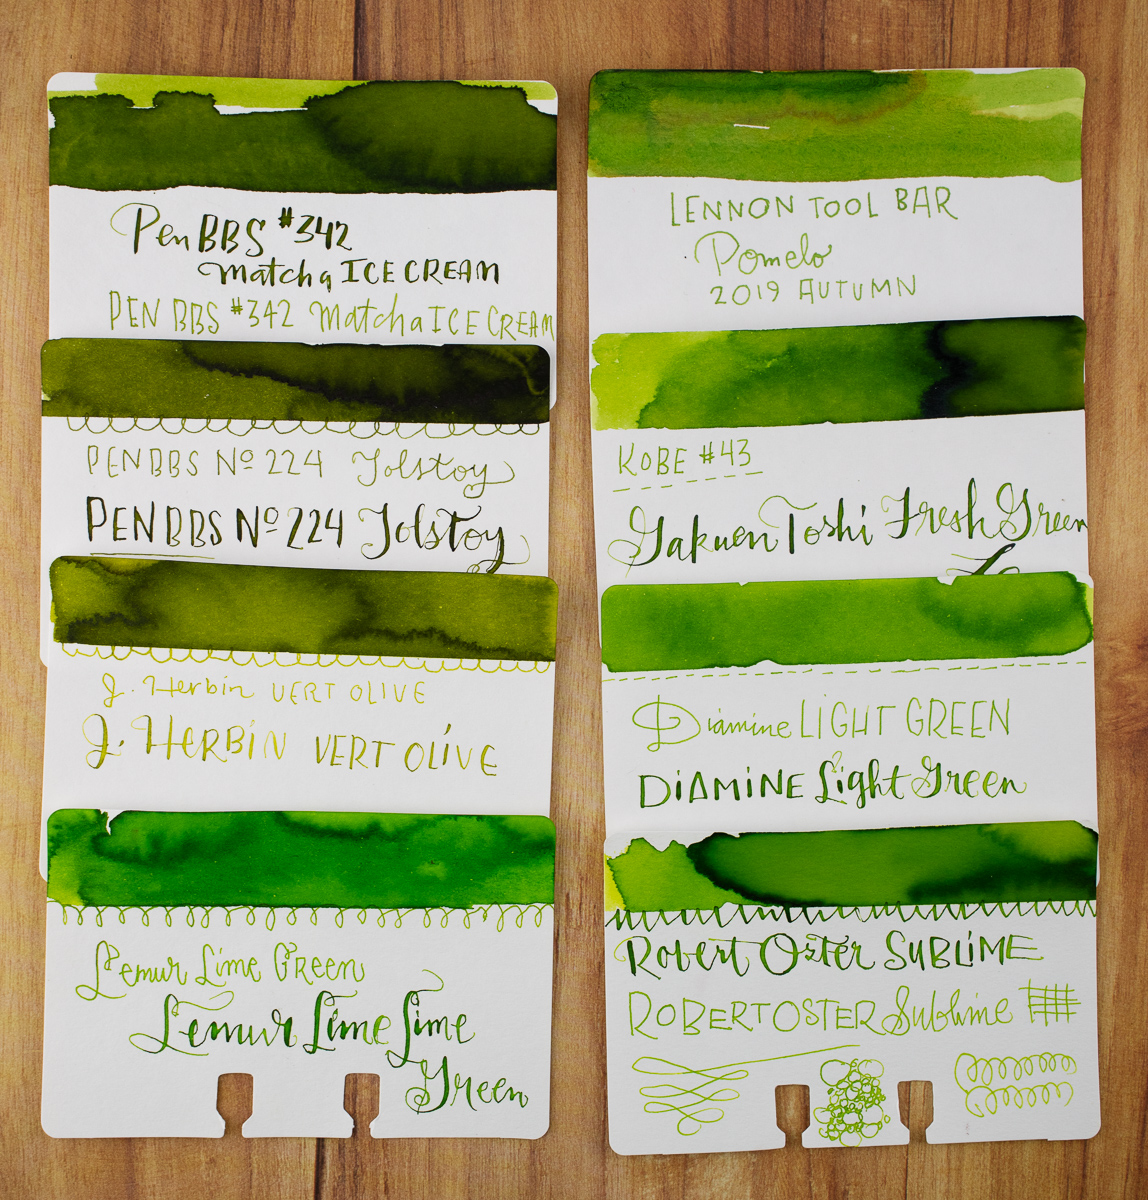 Pen BBS #342
Matcha ICE CREAM
PEN BBS #342 Matcha ICE CREAM
PENBBS Nº 224 Tolstoy
PENBBS Nº 224 Tolstoy
J. Herbin VERT OLIVE
J. HERBIN VERT OLIVE
Lemur Lime Green
Lemur Lime Lime
Green
LENNON TOOL BAR
Pomelo
2019 AUTUMN
KOBE #43
Gakuen Toshi Fresh Green
Diamine LIGHT GREEN
DIAMINE Light Green
Robert Oster SUBLIME
ROBERT OSTER Sublime